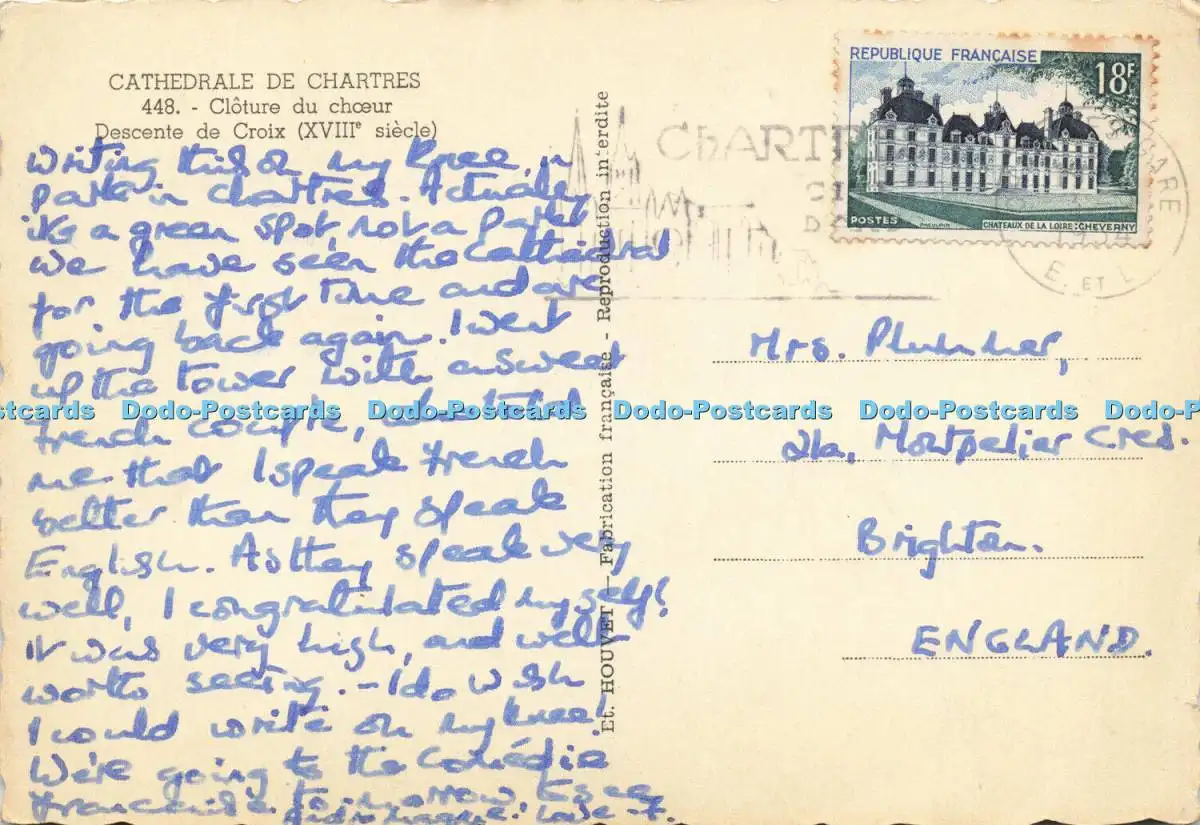 CATHEDRALE DE CHARTRES
448. - Clôture du chœur
Descente de Croix (XVIIIᵉ siècle)
Writing this on my knee, in
park in Chartres. Actually
it's a green spot, not a park!
We have seen the Cathedral
for the first time and are
going back again. I went
up the tower with a sweet
French couple, who told
me that I speak French
better than they speak
English. As they speak very
well, I congratulated myself!
It was very high, and well
worth seeing. - I do wish
I could write on my knee!
We're going to the Comédie
Francaise tomorrow, to see
Andromaque. Love - F.
Et. HOUVET — Fabrication française - Reproduction interdite
REPUBLIQUE FRANÇAISE
18F
POSTES
CHATEAUX DE LA LOIRE: CHEVERNY
CHARTR
GARE
1954
E. ET L
Mrs. Plummer,
21a, Montpelier Cres.
Brighton.
ENGLAND.
stcards Dodo-Postcards Dodo-Postcards Dodo-Postcards Dodo-Postcards Dodo-Po